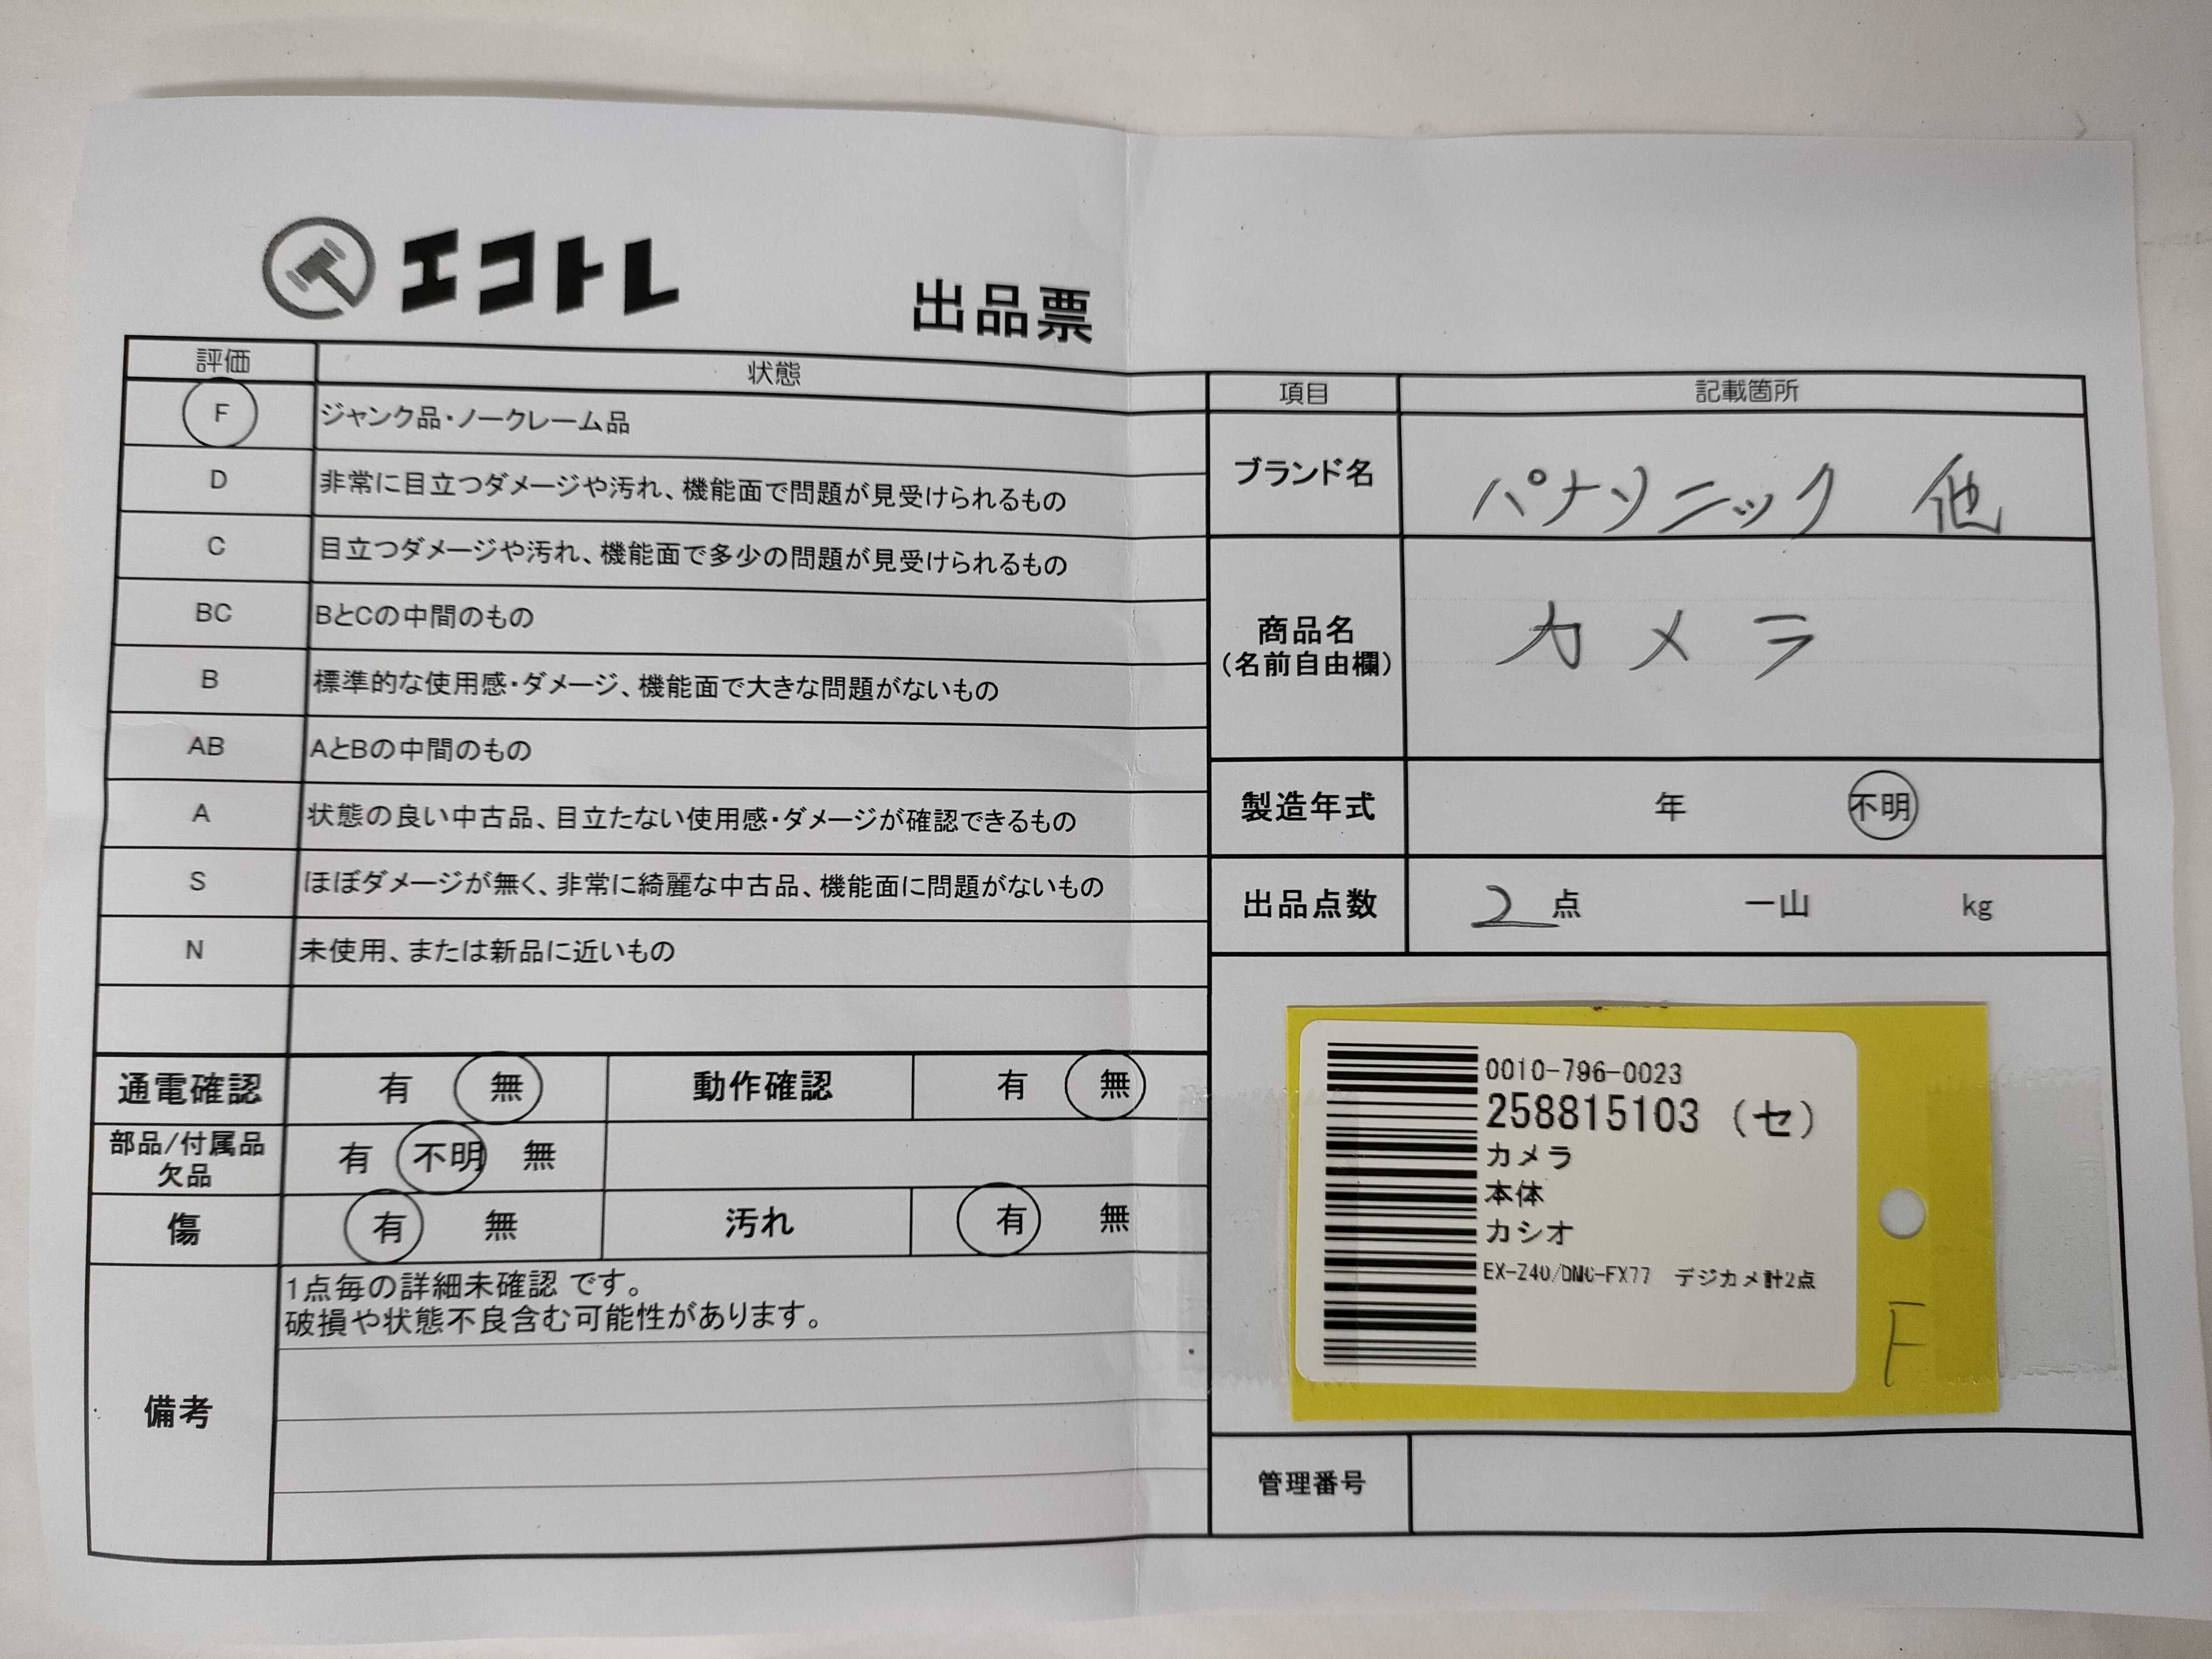 エコトレ
出品票
評価 状態
F ジャンク品・ノークレーム品
D 非常に目立つダメージや汚れ、機能面で問題が見受けられるもの
C 目立つダメージや汚れ、機能面で多少の問題が見受けられるもの
BC BとCの中間のもの
B 標準的な使用感・ダメージ、機能面で大きな問題がないもの
AB AとBの中間のもの
A 状態の良い中古品、目立たない使用感・ダメージが確認できるもの
S ほぼダメージが無く、非常に綺麗な中古品、機能面に問題がないもの
N 未使用、または新品に近いもの
通電確認 有 無 動作確認 有 無
部品/付属品
欠品 有 不明 無
傷 有 無 汚れ 有 無
備考
1点毎の詳細未確認 です。
破損や状態不良含む可能性があります。
項目 記載箇所
ブランド名 パナソニック 他
商品名
(名前自由欄) カメラ
製造年式 年 不明
出品点数 2 点 一山 kg
0010-796-0023
258815103 (セ)
カメラ
本体
カシオ
EX-Z40/DMC-FX77 デジカメ計2点
F
管理番号